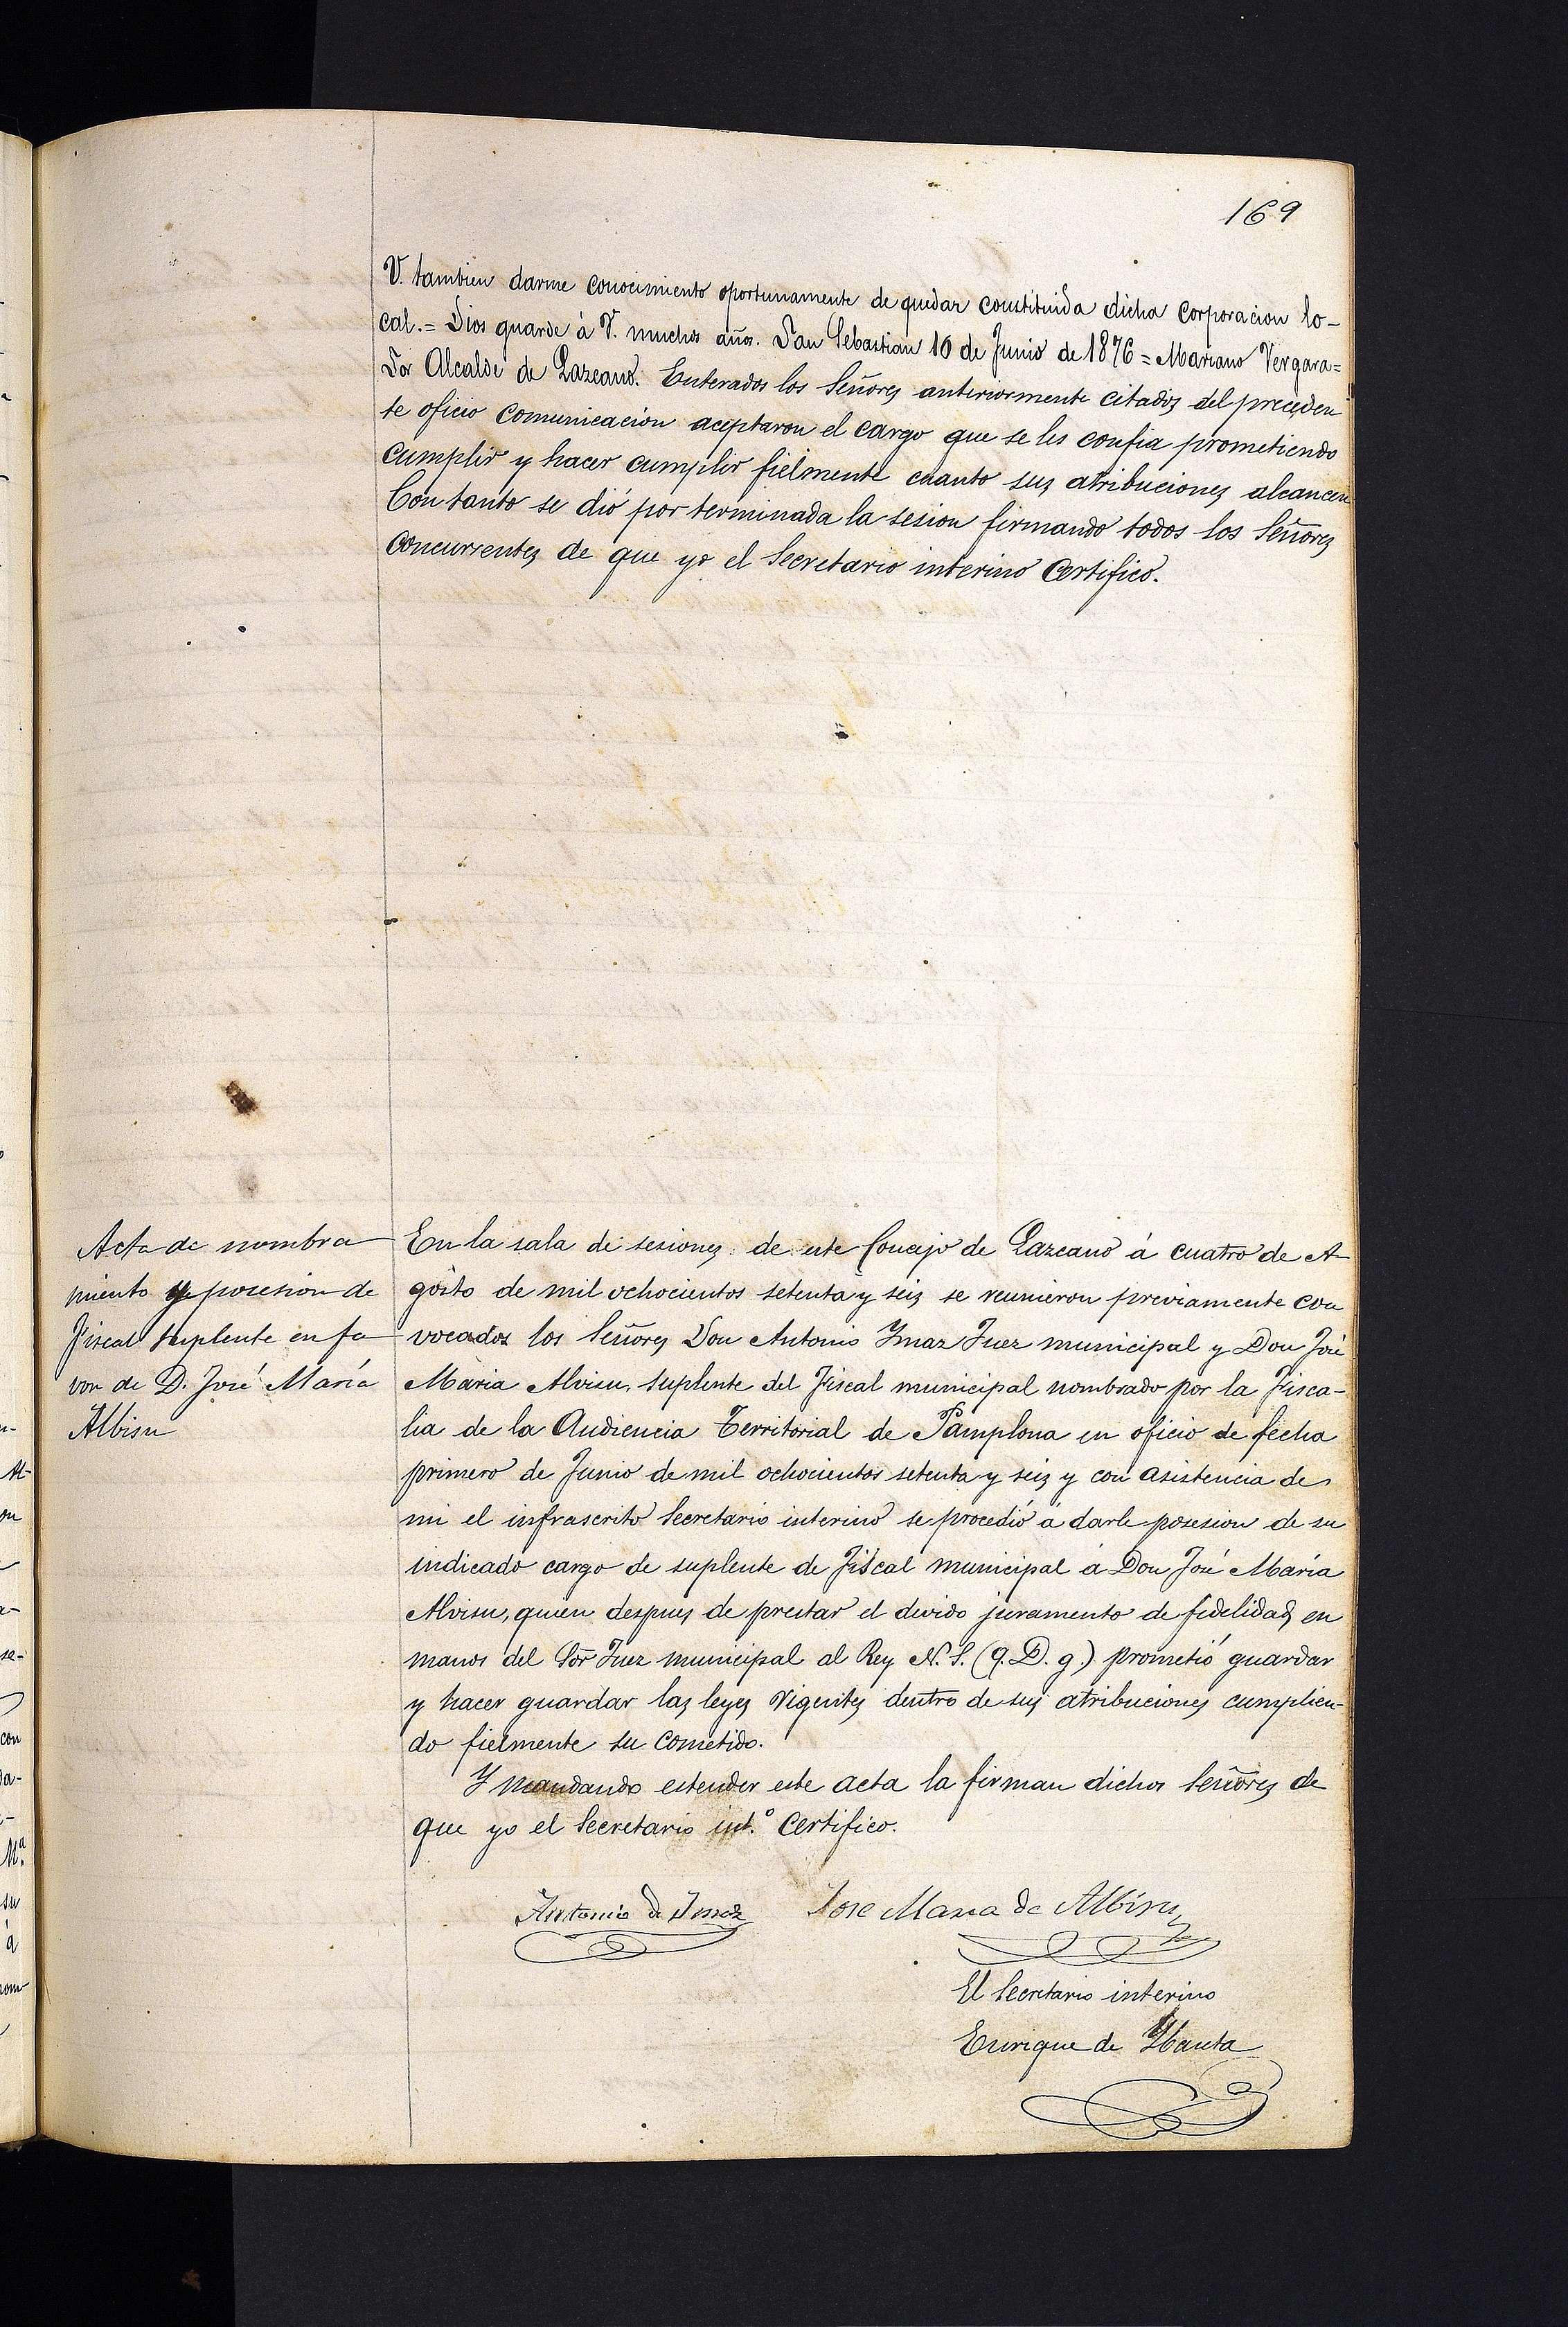 169
V. tambien darme conocimiento oportunamente de quedar constituida dicha Corporacion lo-
cal.= Dios guarde à V. muchos años. San Sebastian 10 de Junio de 1876 = Mariano Vergara=
Sor Alcalde de Lazcano. Enterados los Señores anteriormente citados del preceden
te oficio comunicacion aceptaron el cargo que se les confia prometiendo
cumplir y hacer cumplir fielmente cuanto sus atribuciones alcancen
Con tanto se dió por terminada la sesion firmando todos los Señores
concurrentes de que yo el Secretario interino Certifico.
Acta de nombra
miento y posesion de
Fiscal suplente en fa
vor de D. José María
Albisu
En la sala de sesiones de este Concejo de Lazcano á cuatro de A-
gosto de mil ochocientos setenta y seis se reunieron previamente con
vocados los Señores Don Antonio Ymaz Juez municipal y Don José
Maria Alvisu, suplente del Fiscal municipal nombrado por la Fisca-
lia de la Audiencia Territorial de Pamplona en oficio de fecha
primero de Junio de mil ochocientos setenta y seis y con asistencia de
mi el infrascrito Secretario interino se procedió á darle posesion de su
indicado cargo de suplente de Fiscal municipal á Don José María
Alvisu, quien despues de prestar el devido juramento de fidelidad en
manos del Sor Juez municipal al Rey N. S. (q. D. g.) prometió guardar
y hacer guardar las leyes vigentes dentro de sus atribuciones cumplien-
do fielmente su cometido.
Y mandando estender este acta la firman dichos Señores de
que yo el Secretario int.º Certifico.
Antonio de Imaz Jose Maria de Albisu
El Secretario interino
Enrique de